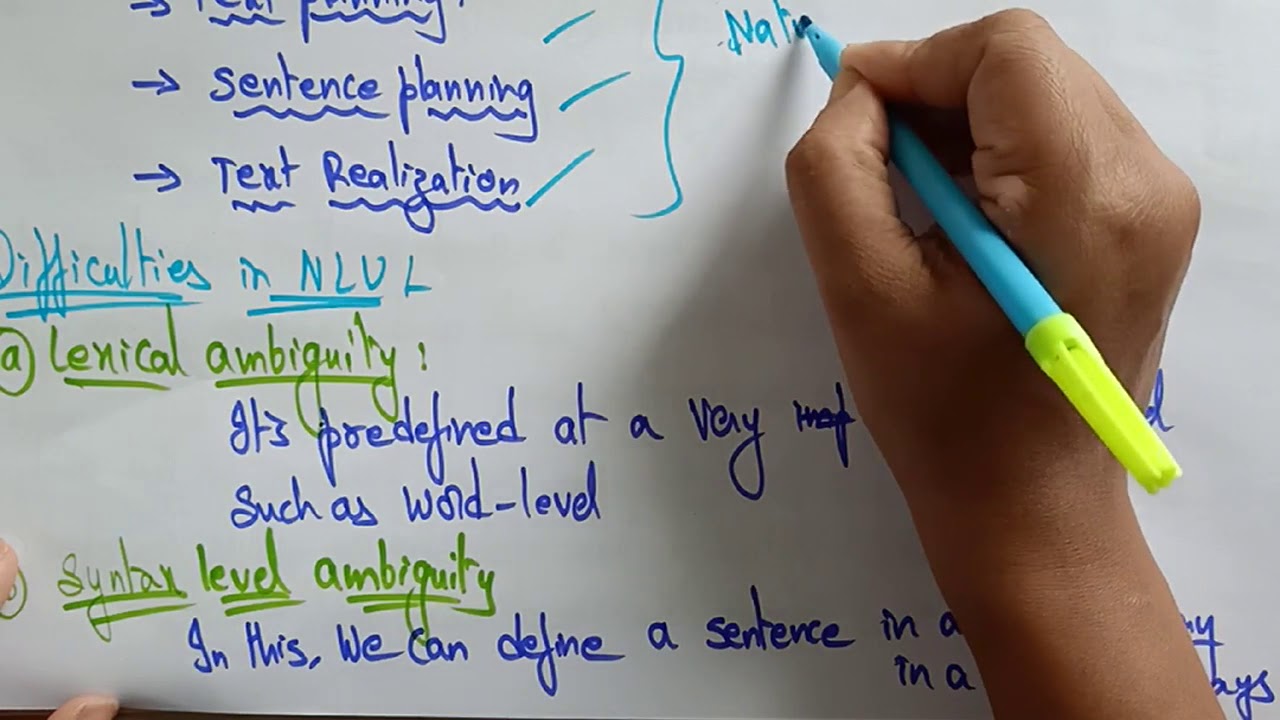 → Text planning:
→ Sentence planning
→ Text Realization
Natu
Difficulties in NLUL
a) Lexical ambiguity:
It's predefined at a very
such as word-level
Syntax level ambiguity
In this, we can define a sentence in a
in a